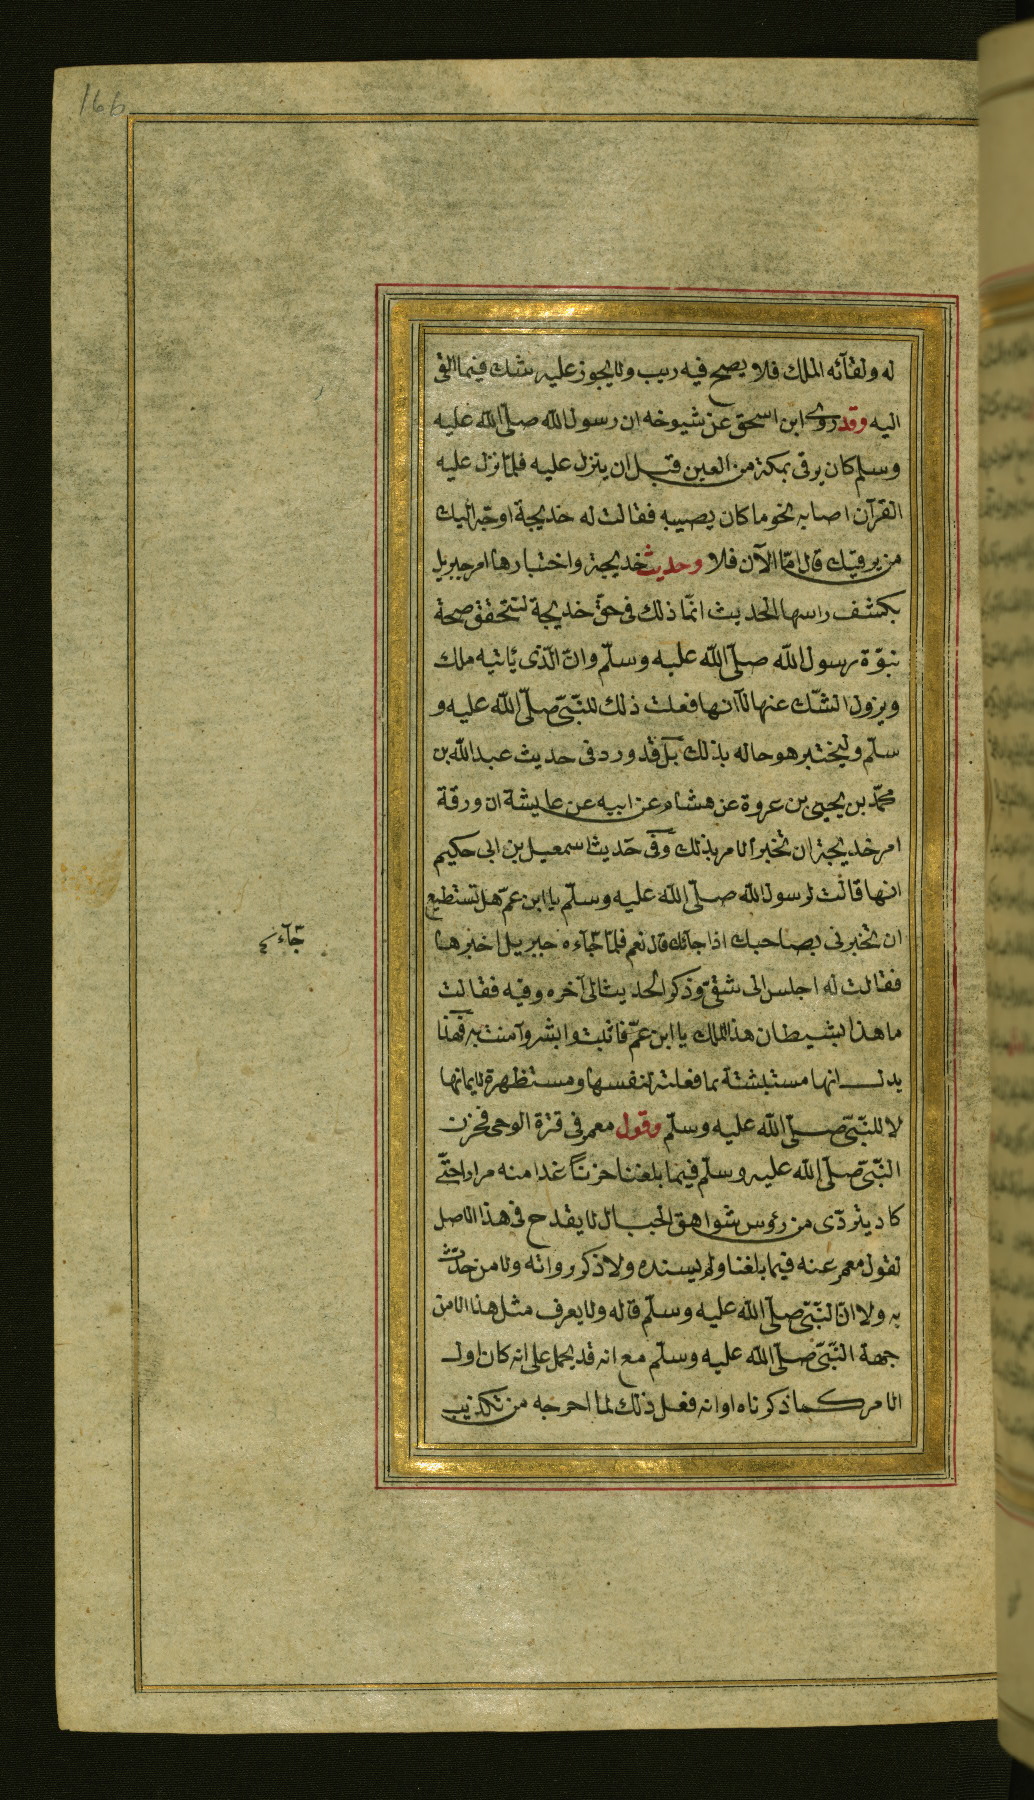 166
له ولقآئه الملك فلا يصح فيه ريب ولا يجوز عليه شك فيما القى
اليه وقد روى ابن اسحق عن شيوخه ان رسول الله صلّى الله عليه
وسلم كان يرقى بمكة من العين قبل ان ينزل عليه فلمّا نزل عليه
القرآن اصابه نحو ما كان يصيبه فقالت له خديجة اوجّه اليك
من يرقيك قال امّا الآن فلا وحديث خديجة واختبارها امر جبريل
بكشف راسها الحديث انّما ذلك فى حقّ خديجة لتتحقق صحة
نبوّة رسول الله صلّى الله عليه وسلّم وانّ الّذى يأتيه ملك
ويزول الشّك عنها لا انها فعلت ذلك للنّبىّ صلّى الله عليه و
سلّم وليختبر هو حاله بذلك بل قد ورد فى حديث عبد الله بن
محمّد بن يحيى بن عروة عن هشام عن ابيه عن عايشة ان ورقة
امر خديجة ان تخبر الامر بذلك وفى حديث اسمعيل بن ابى حكيم
انها قالت لرسول الله صلّى الله عليه وسلّم يا ابن عمّ هل تستطيع
ان تخبرنى بصاحبك اذا جائك قال نعم فلمّا جآءه جبريل اخبرها
جآء
فقالت له اجلس الى شقىّ وذكر الحديث الى آخره وفيه فقالت
ما هذا بشيطان هذا الملك يا ابن عمّ فاثبت وابشر وآمنت به فهذا
يدل انها مستثبتة بما فعلته لنفسها ومستظهرة لايمانها
لا للنّبىّ صلّى الله عليه وسلّم وقول معمر فى فترة الوحى فحزن
النّبىّ صلّى الله عليه وسلّم فيما بلغنا حزنًا غدا منه مرارا حتّى
كاد يتردّى من رؤس شواهق الجبال لا يقدح فى هذا الاصل
لقول معمر عنه فيما بلغنا ولم يسنده ولا ذكر رواته ولا من حدّث
به ولا انّ النّبىّ صلّى الله عليه وسلّم قاله ولا يعرف مثل هذا الا من
جهة النّبىّ صلّى الله عليه وسلّم مع انه قد يحمل على انه كان اول
الامر كما ذكرناه او انه فعل ذلك لما احرجه من تكذيب